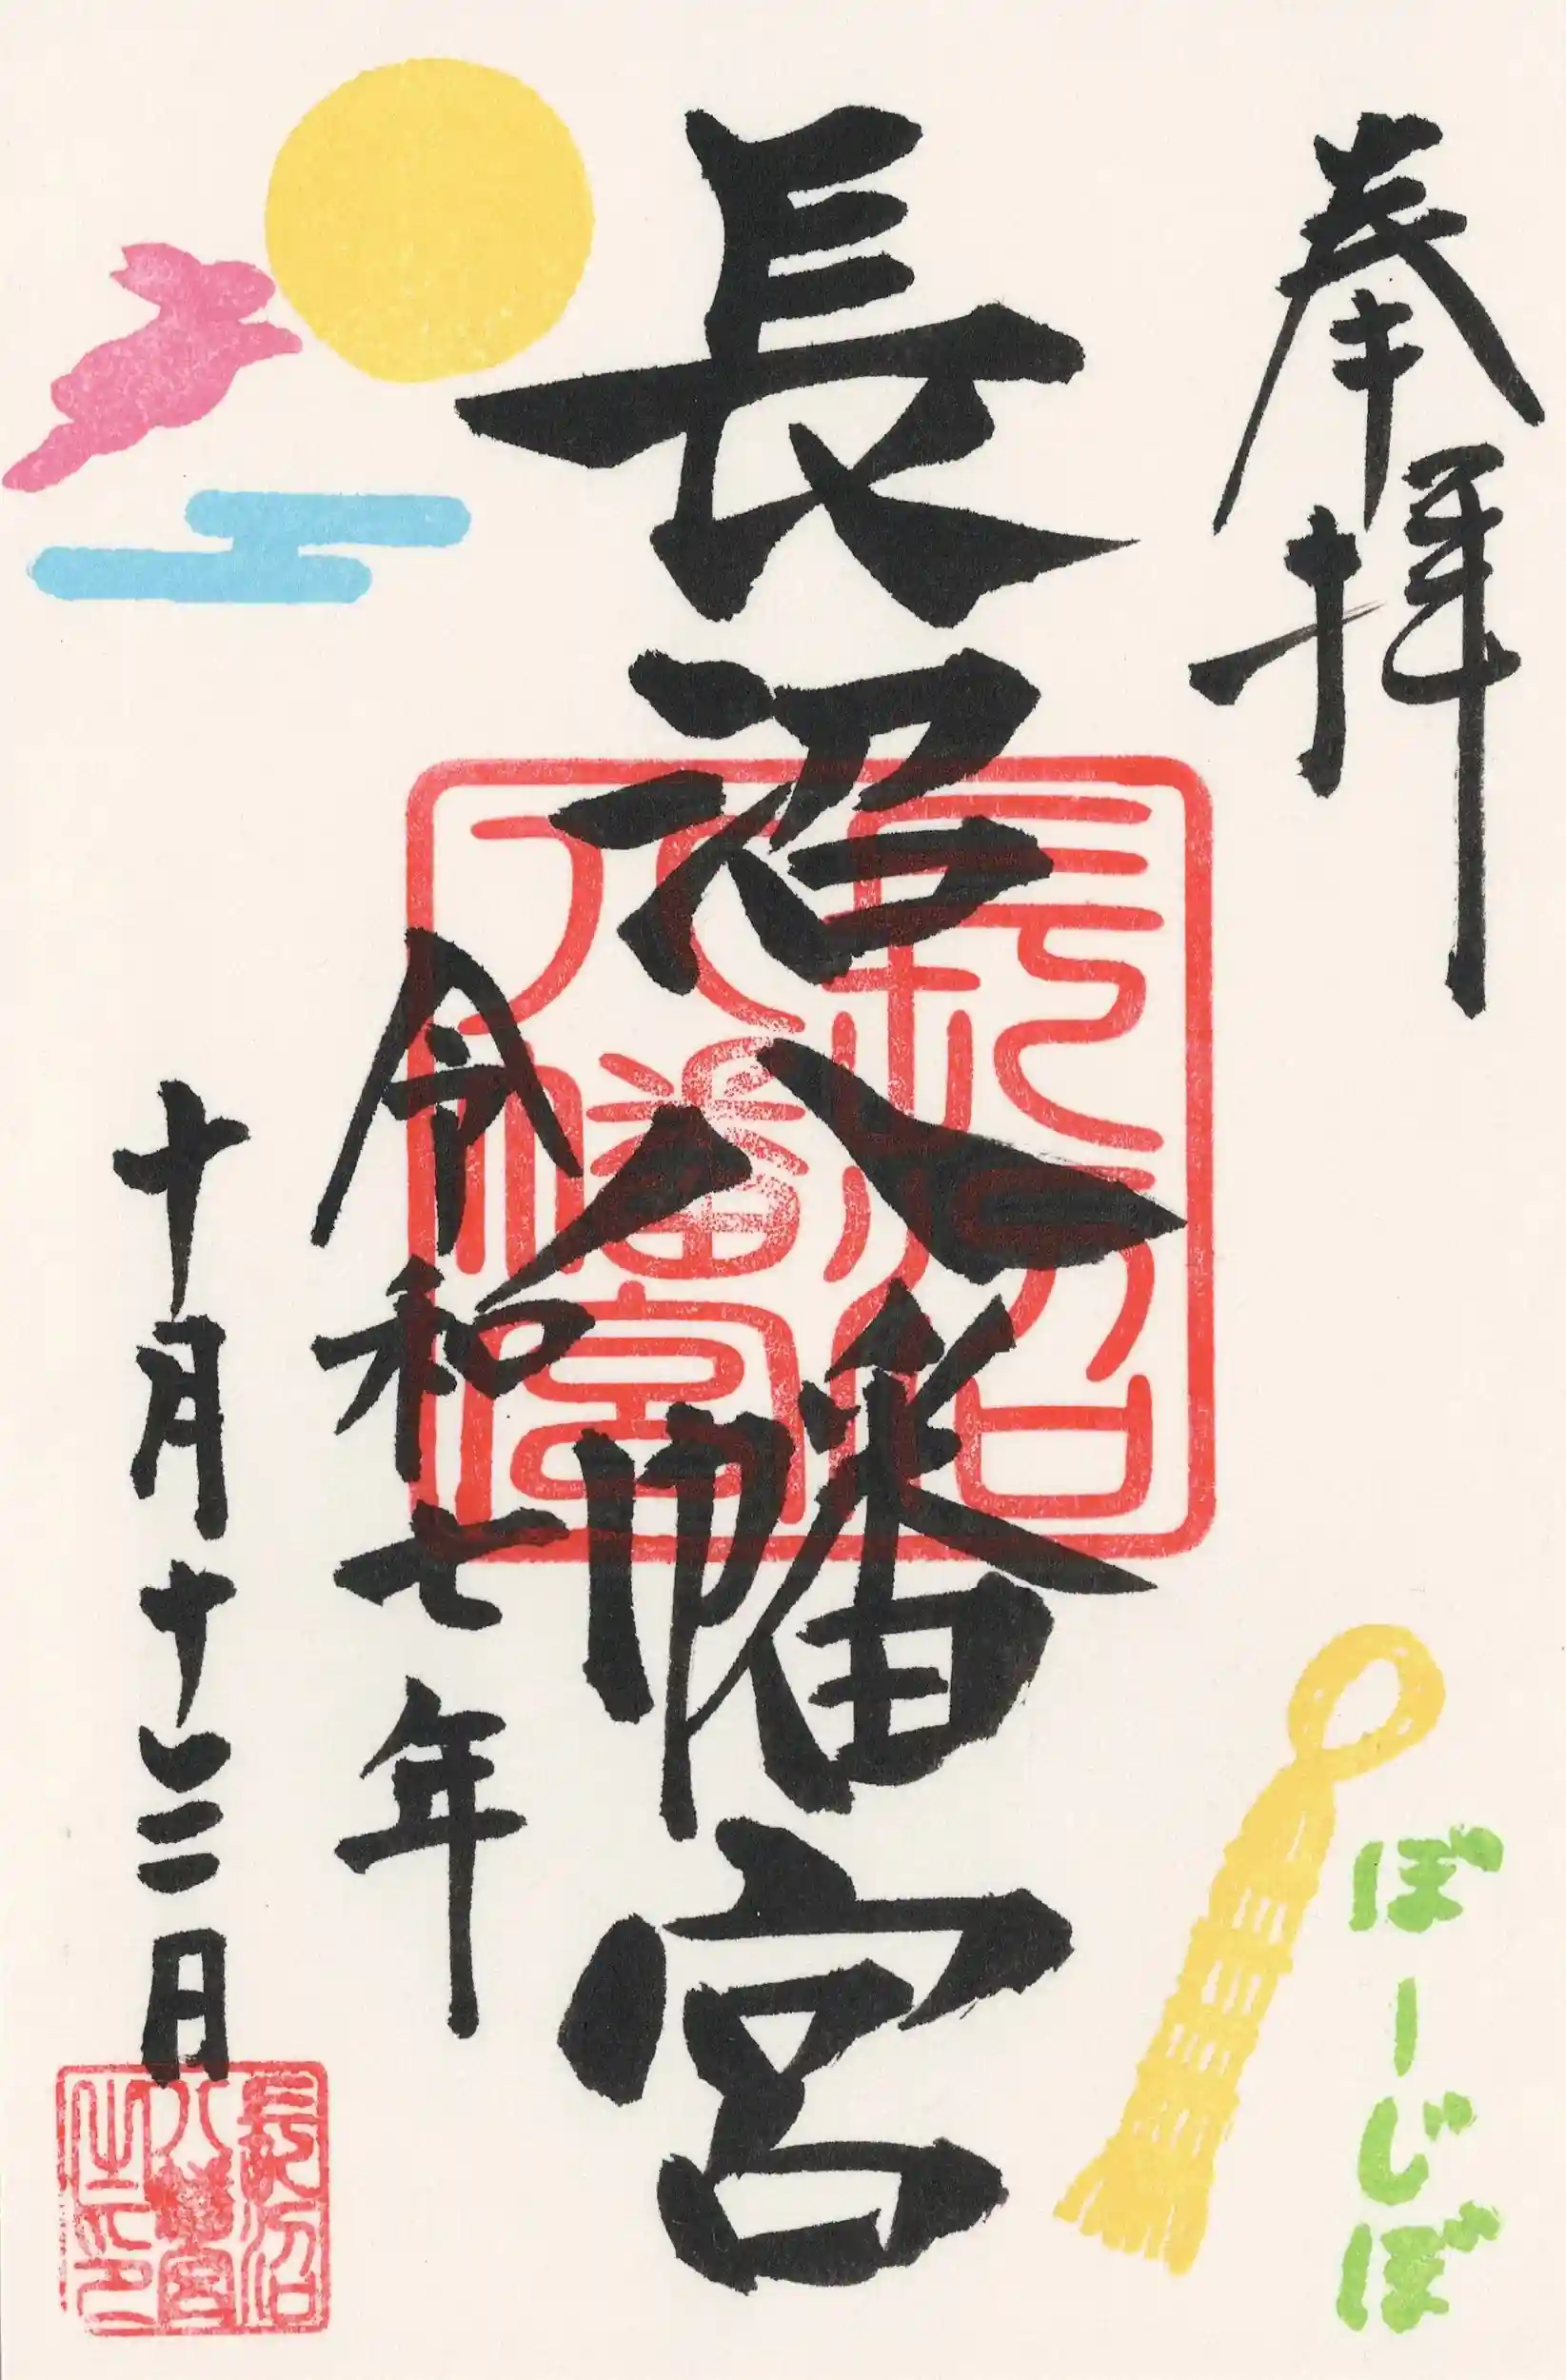 奉拝
ぼーじぼ
長沼八幡宮
長沼
八幡宮
令和七年
十月十三日
長沼
八幡宮
之印